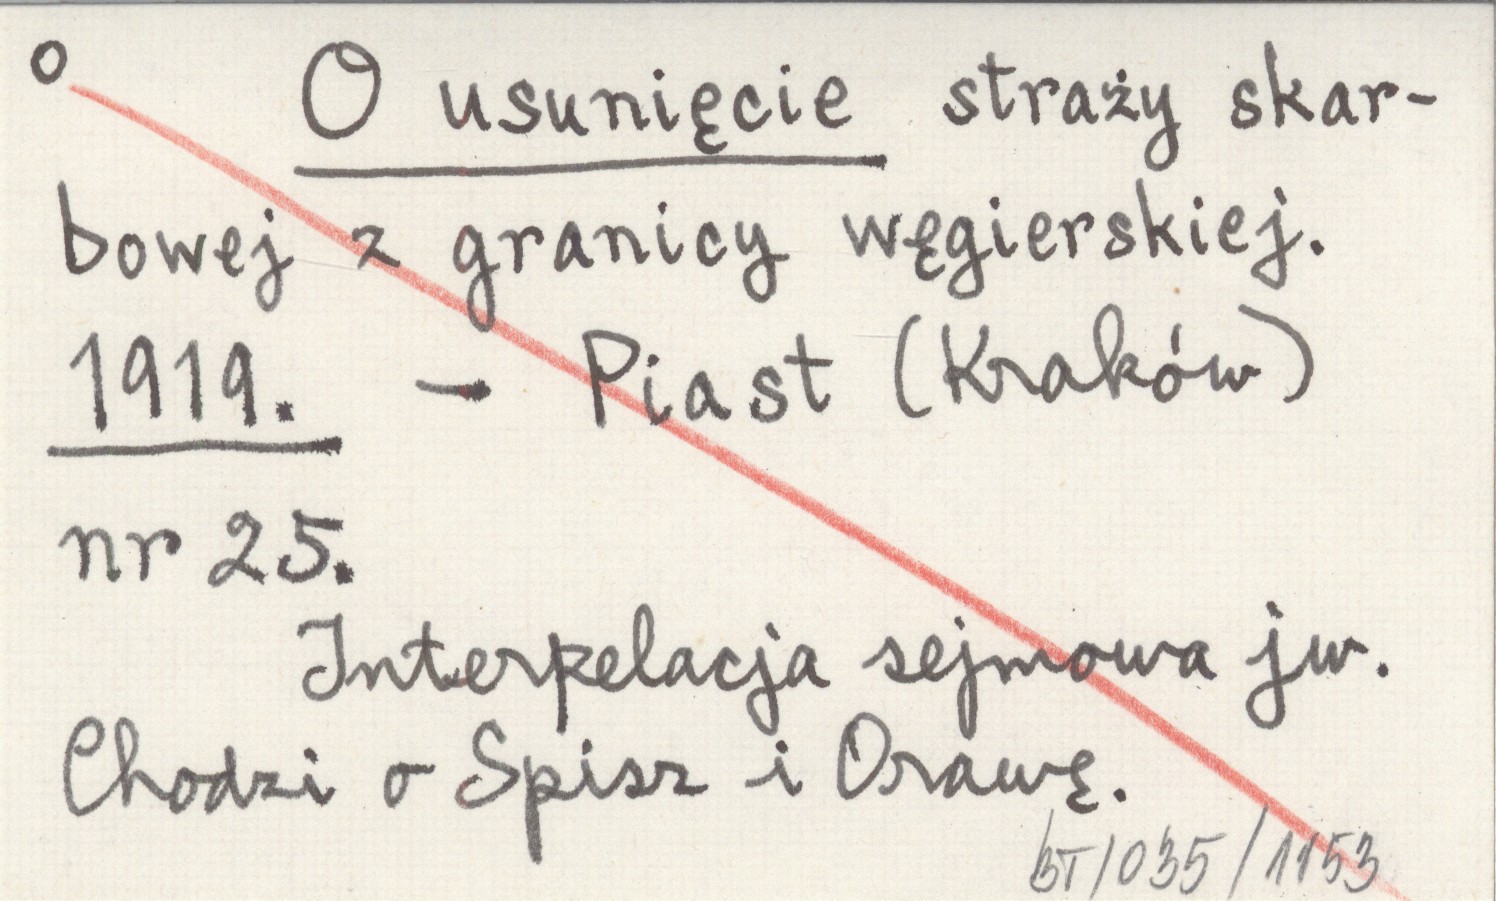 o O usunięcie straży skar-
bowej z granicy węgierskiej.
1919. - Piast (Kraków)
nr 25.
Interpelacja sejmowa jw.
Chodzi o Spisz i Orawę.
BT/035/1153